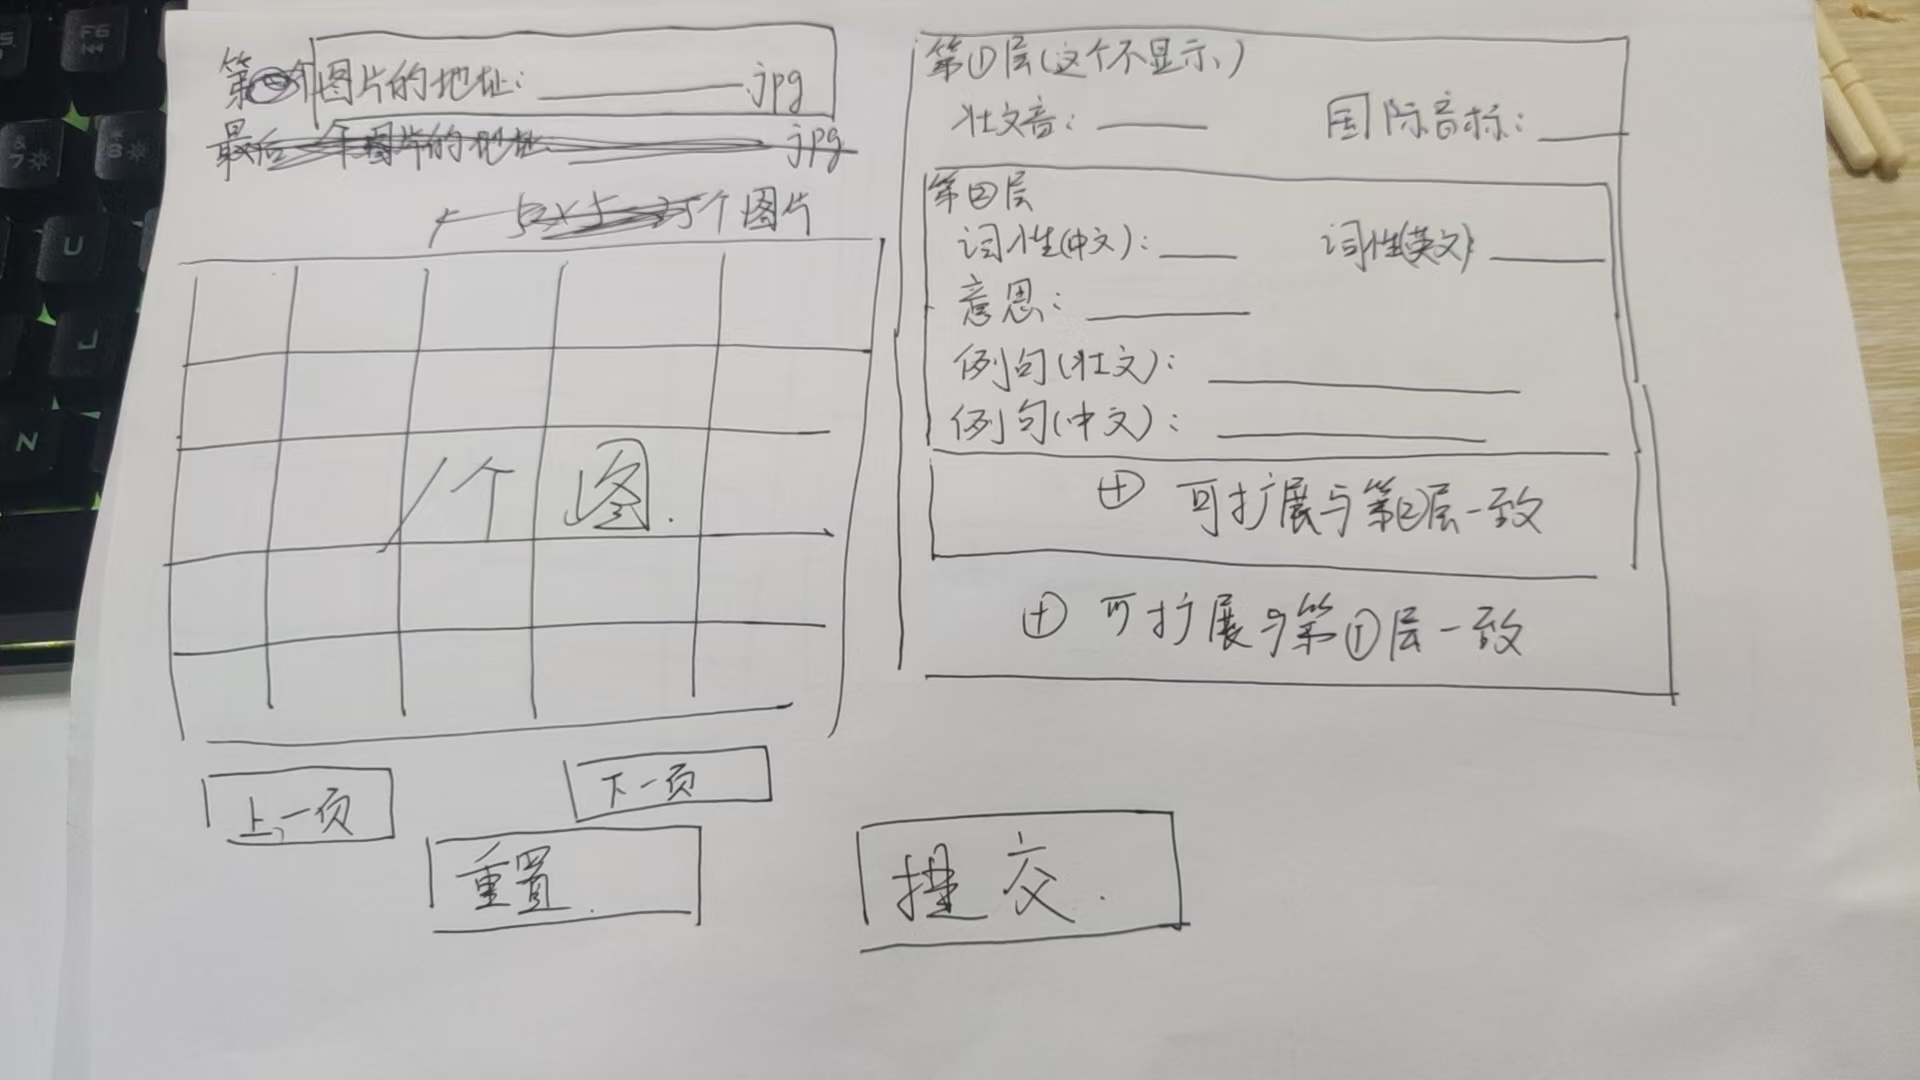 图片的地址: ______.jpg
最后一个图片的地址: ______ jpg
个图片
1个图.
上一页
下一页
重置.
提交.
第①层(这个不显示)
壮文音: ____ 国际音标: ____
第②层
词性(中文): ____ 词性(英文): ____
意思: ____
例句(壮文): ____
例句(中文): ____
⊕ 可扩展与第②层一致
⊕ 可扩展与第①层一致
F6
7
8
U
J
N